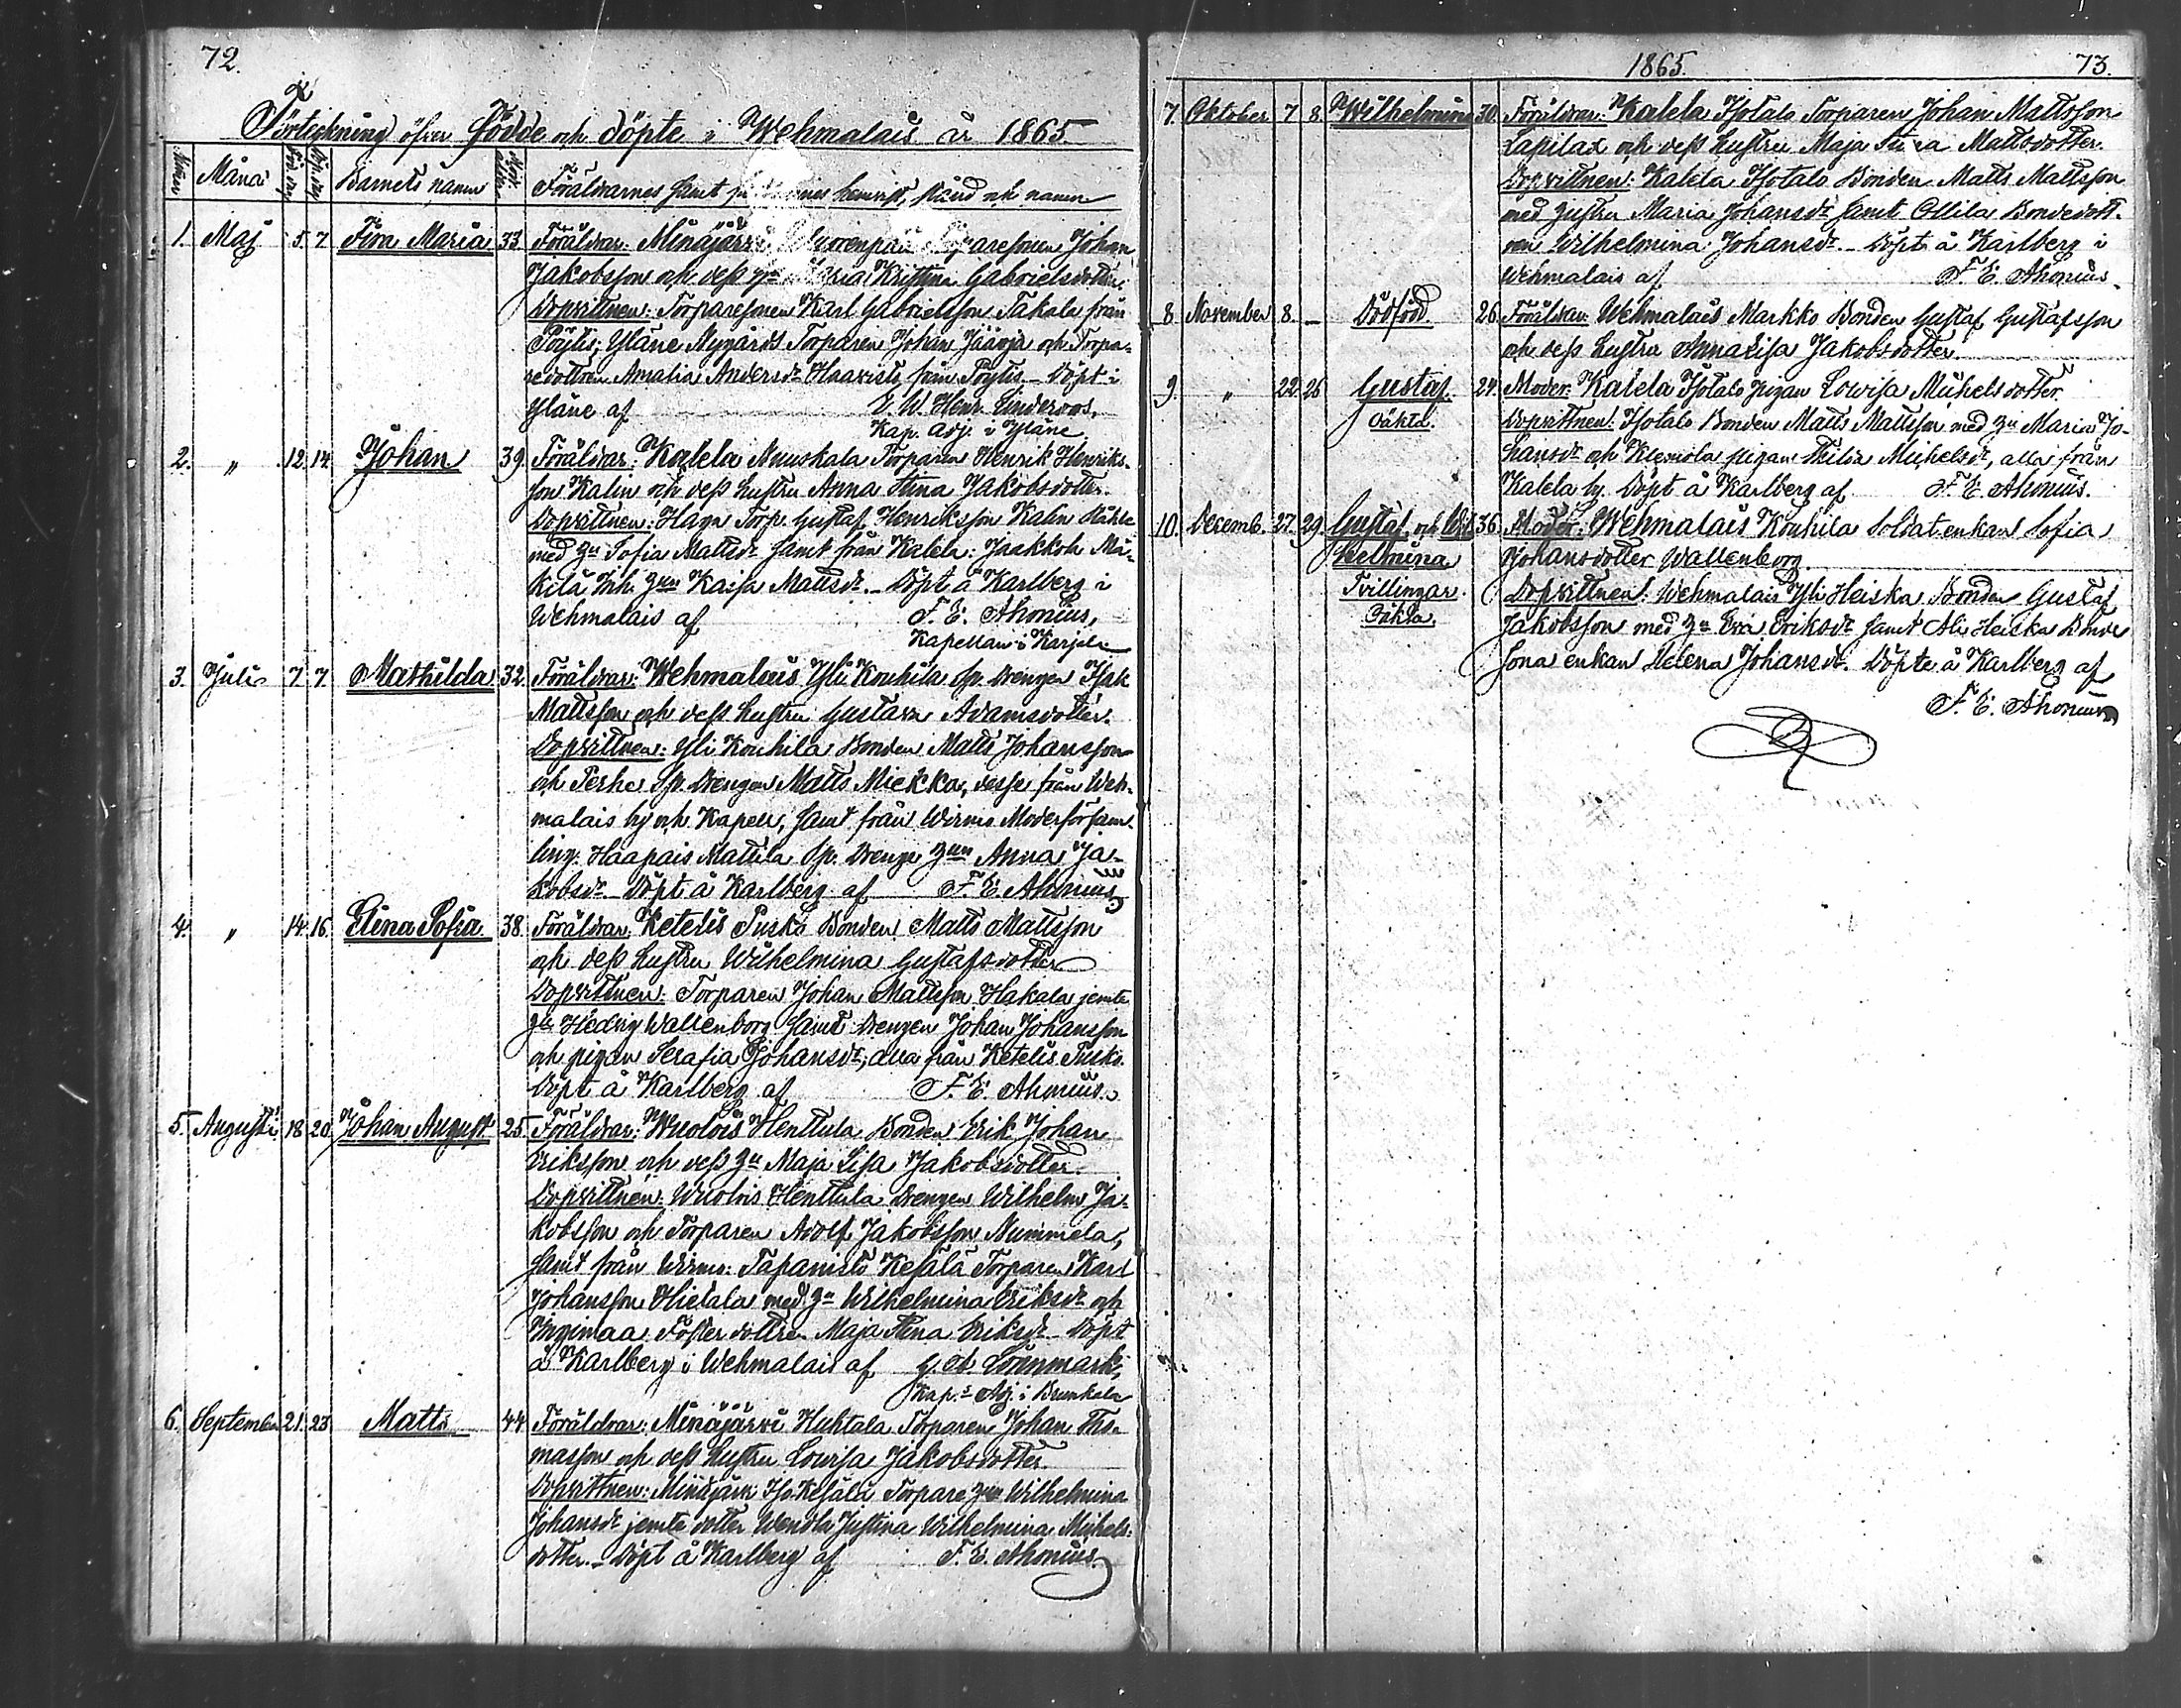 72.
Förteckning öfver Födde och döpte i Wehmalais år 1865.
Månad Barnets namn Föräldrarnes samt hemvist, stånd och namn
1. Maj 5. 7. Fina Maria 33. Föräldrar: Minäjärvi Johan
Jakobsson och dess Kristina Gabrielsdotter.
Dopvittnen: Torparesonen Karl Gabrielsson Takala från
Pöytis; Yläne Nygårds Torparen Johan och Torpa-
redottren Amalia Andersdr Haavisto från Pöytis. Döpt i
Yläne af V. W. Henr. Linderoos.
Kap. Adj. i Yläne
2. " 12. 14. Johan 39. Föräldrar: Kalela Muuskala Torparen Henrik Henriks-
son Kalin och dess hustru Anna Stina Jakobsdotter.
Dopvittnen: Torp. Gustaf Henriksson Kalin
med Sofia Mattsdr samt från Kalela: Jaakkola Mä-
kilä Kaisa Mattsdr. Döpt å Karlberg i
Wehmalais af F. E. Ahonius,
Kapellan i Karjala
3. Julii 7. 7. Mathilda 32. Föräldrar: Wehmalais Yli Kouhila Sp. Drengen Isak
Mattsson och dess hustru Gustava Adamsdotter.
Dopvittnen: Yli Kouhila Bonden Matts Johansson
och Perho Sp. Drengen Matts Miekka, desse från Weh-
malais by och Kapell, samt från Wirmo Moderförsam-
ling: Haapais Mattila Sp. Drenge Anna Ja-
kobsdr. Döpt å Karlberg af F. E. Ahonius.
4. " 14. 16. Elena Sofia 38. Föräldrar: Ketelis Pusko Bonden Matts Mattsson
och dess hustru Wilhelmina Gustafsdotter
Dopvittnen: Torparen Johan Mattsson Hakala jemte
Hedvig Wallenborg samt Drengen Johan Johansson
och pigan Serafia Johansdr, alla från Ketelis Pusko.
Döpt å Karlberg af F. E. Ahonius.
5. Augusti 18 20 Johan August 25. Föräldrar: Wuolois Henttula Bonden Erik Johan
Eriksson och dess Maja Lisa Jakobsdotter.
Dopvittnen: Wuolois Henttula Drengen Wilhelm Ja-
kobsson och Torparen Adolf Jakobsson Nummela,
samt från Wirmo: Tapanisto Kesälä Torparen Karl
Johansson Hietala med Wilhelmina Eriksdr och
Foster dottren Maja Stina Eriksdr. Döpt
å Karlberg i Wehmalais af G. A. Lönnmark,
Kap.s Adj. i Brunkala
6. September 21. 23 Matts 44 Föräldrar: Minäjärvi Huhtala Torparen Johan Tho-
masson och dess hustru Lovisa Jakobsdotter
Dopvittnen: Minäjärvi Iso Kesälä Torpare Wilhelmina
Johansdr jemte dotter Wendla Justina Wilhelmina Michels-
dotter. Döpt å Karlberg af F. E. Ahonius.
1865. 73.
7. Oktober 7 8 Wilhelmina 30. Föräldrar: Kalela Isotalo Torparen Johan Mattsson
Lapilax och dess hustru Maja Stina Mattsdotter.
Dopvittnen: Kalela Isotalo Bonden Matts Mattsson
med hustru Maria Johansdr samt Ollila Bondedott-
ren Wilhelmina Johansdr. Döpt å Karlberg i
Wehmalais af F. E. Ahonius.
8. November 8. – Dödfödd. 26. Föräldrar: Wehmalais Markko Bonden Gustaf Gustafsson
och dess hustru Anna Lisa Jakobsdotter
9. " 22. 26 Gustaf. 24. Moder: Kalela Isotalo pigan Lovisa Michelsdotter
oäkta. Dopvittnen: Isotalo Bonden Matts Mattsson med Maria Jo-
hansdr och pigan Michelsdr, alla från
Kalela by. Döpt å Karlberg af F. E. Ahonius.
10. Decemb. 27. 29. Gustaf och Wil- 36. Moder: Wehmalais Kouhila Soldatenkan Sofia
helmina Johansdotter Wallenborg.
Tvillingar. Dopvittnen: Wehmalais Yli Heiska Bonden Gustaf
Oäkta. Jakobsson med Eva Eriksdr samt Ali Heiska Bonde
sona enkan Helena Johansdr. Döpte å Karlberg af
F. E. Ahonius